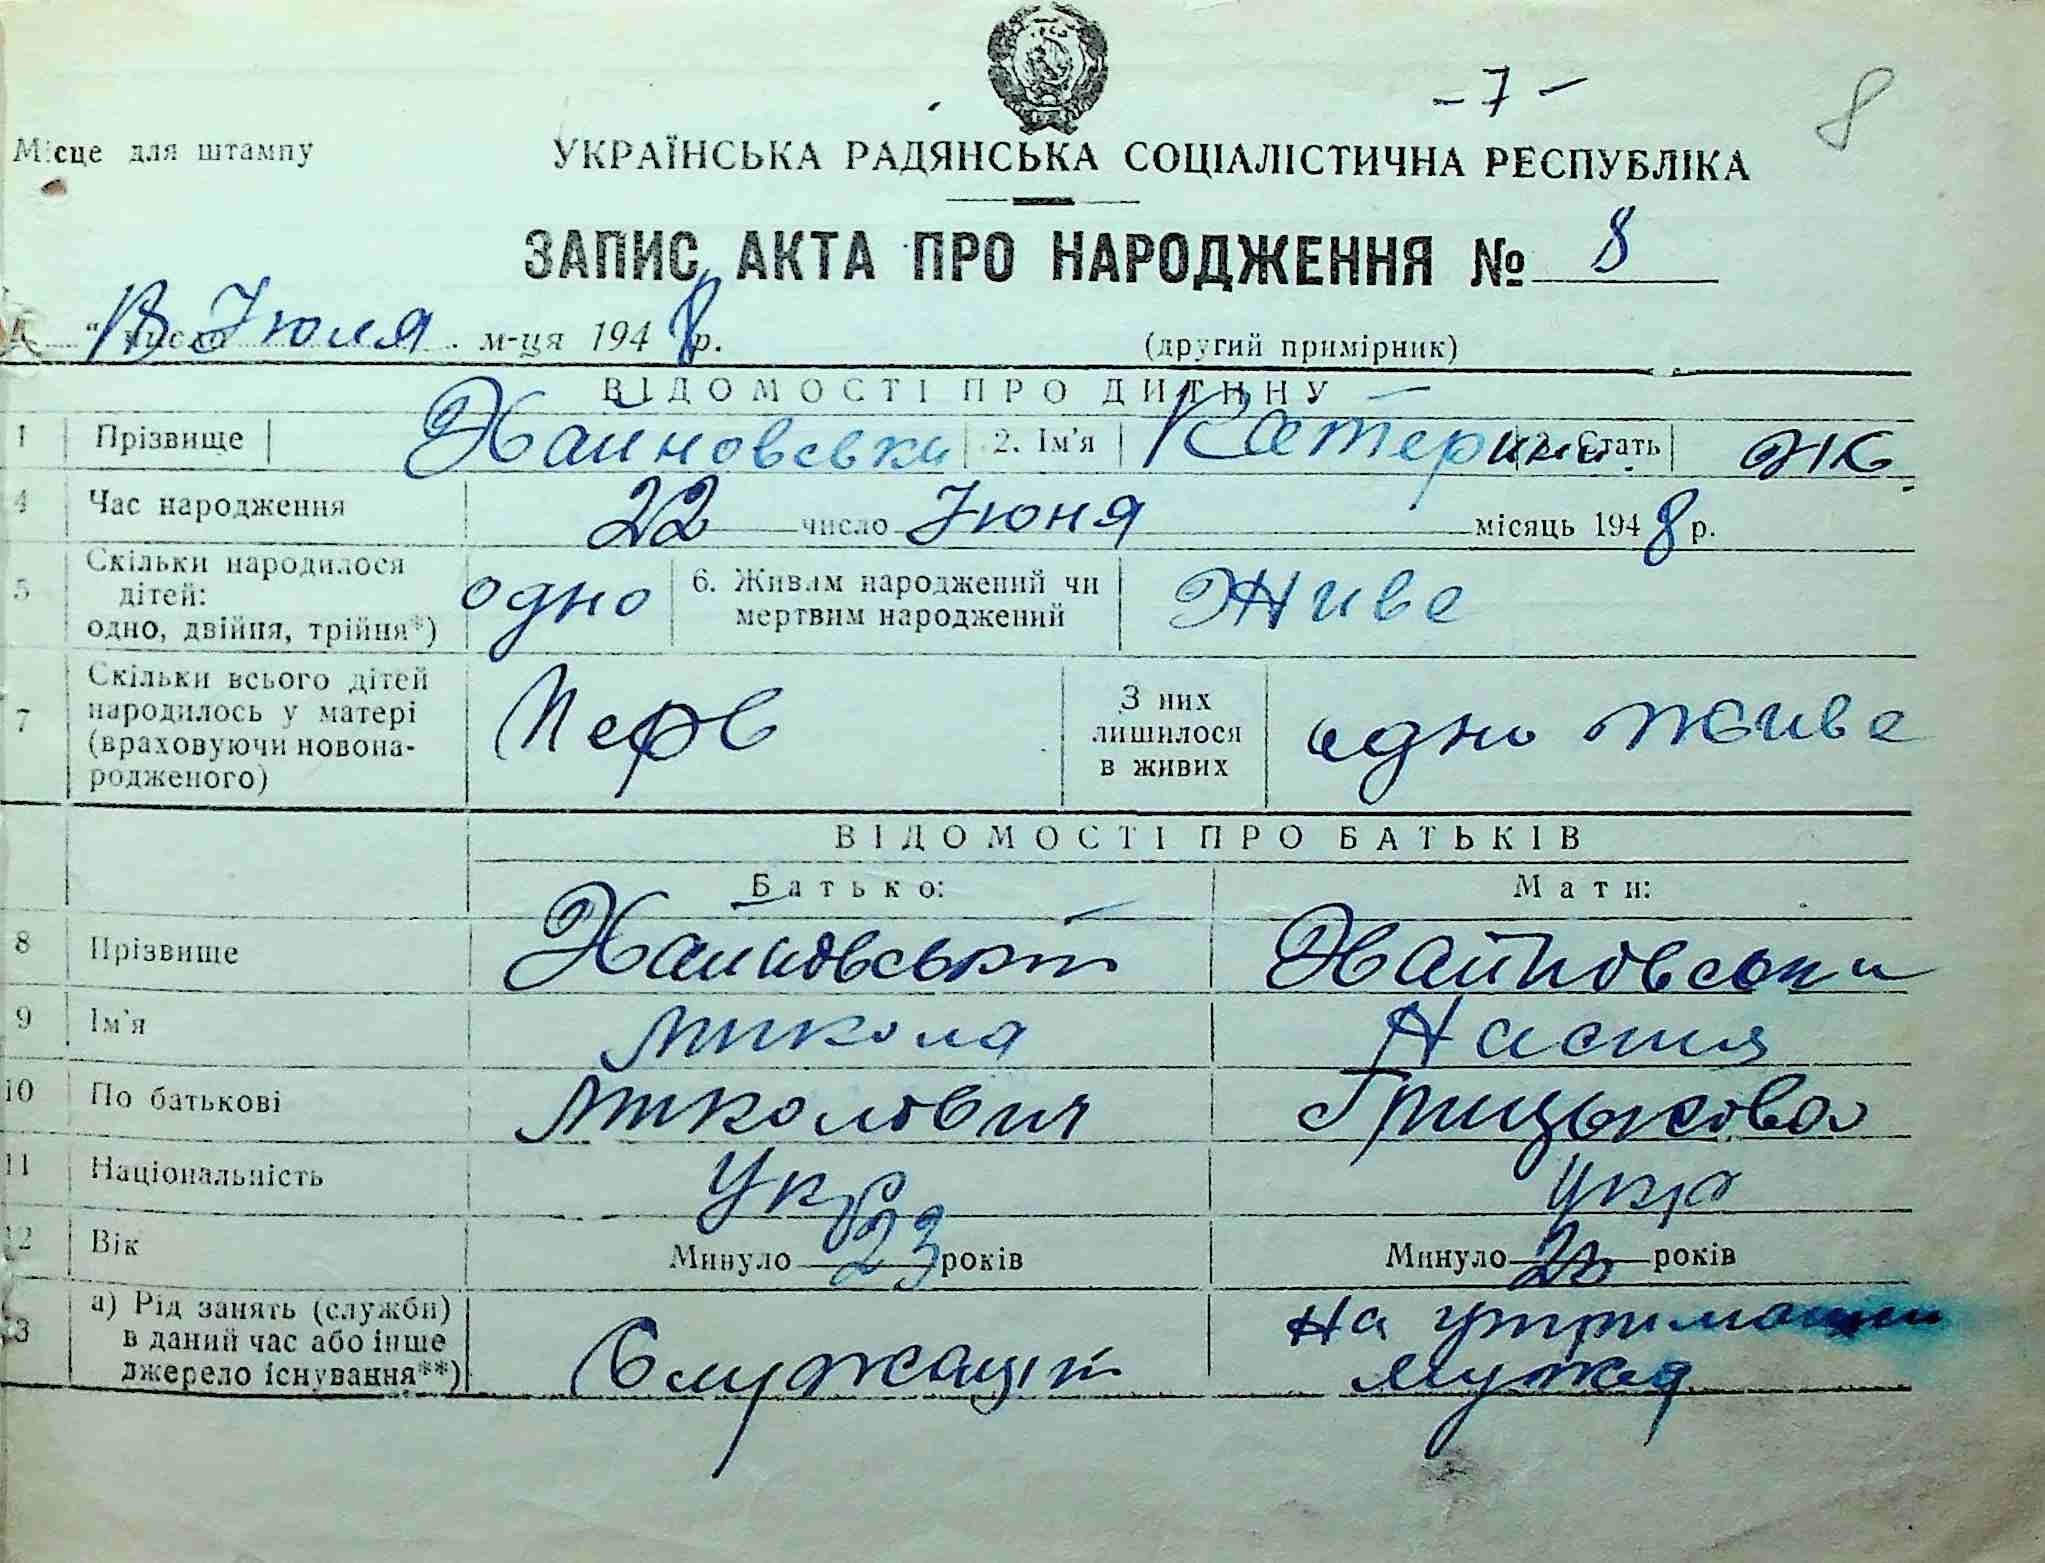 - 7 -
8
Місце для штампу
УКРАЇНСЬКА РАДЯНСЬКА СОЦІАЛІСТИЧНА РЕСПУБЛІКА
ЗАПИС АКТА ПРО НАРОДЖЕННЯ № 8
" число Июля м-ця 1948 р.
(другий примірник)
ВІДОМОСТІ ПРО ДИТИНУ
1 Прізвище Хайновська 2. Ім'я Катерина 3. Стать ж
4 Час народження 22 число Июня місяць 1948 р.
5 Скільки народилося дітей: одно, двійня, трійня*) одно 6. Живим народжений чи мертвим народжений Живе
7 Скільки всього дітей народилось у матері (враховуючи новонародженого) Перв З них лишилося в живих одно живе
ВІДОМОСТІ ПРО БАТЬКІВ
Батько: Мати:
8 Прізвище Хайновський Хайновська
9 Ім'я Микола Настя
10 По батькові Миколович Грицькова
11 Національність Укр укр
12 Вік Минуло 23 років Минуло років
13 а) Рід занять (служби) в даний час або інше джерело існування**) Служащій На утриманні мужа